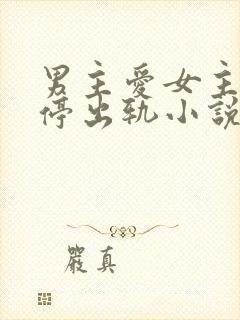 男主愛女主
停出軌小說
嚴真